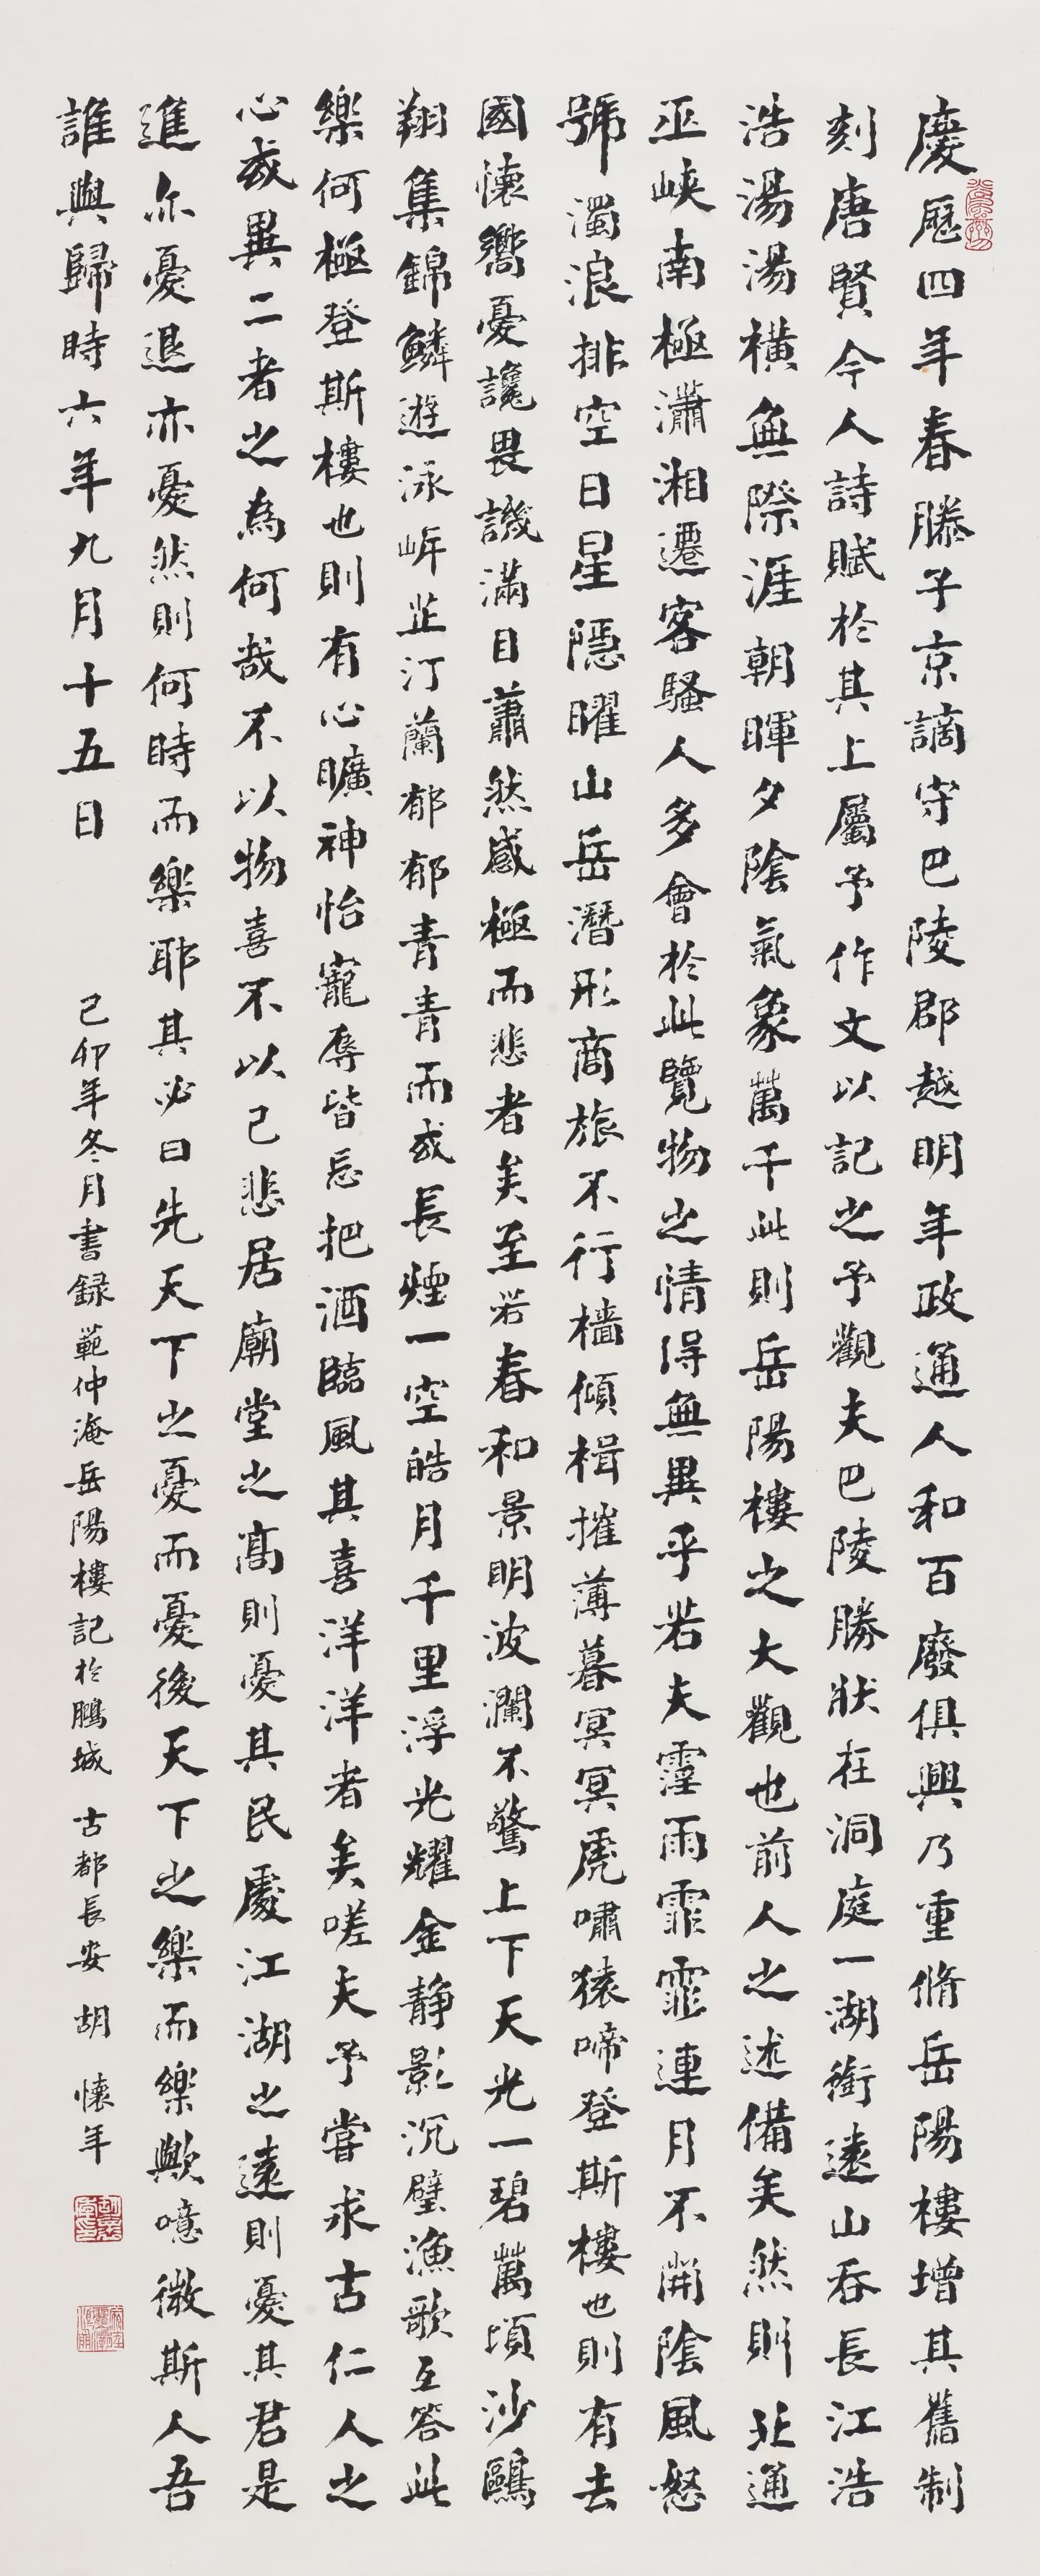 慶歷四年春滕子京謫守巴陵郡越明年政通人和百廢俱興乃重脩岳陽樓增其舊制
刻唐賢今人詩賦於其上屬予作文以記之予觀夫巴陵勝狀在洞庭一湖銜遠山吞長江浩
浩湯湯橫無際涯朝暉夕陰氣象萬千此則岳陽樓之大觀也前人之述備矣然則北通
巫峽南極瀟湘遷客騷人多會於此覽物之情得無異乎若夫霪雨霏霏連月不開陰風怒
號濁浪排空日星隱曜山岳潛形商旅不行檣傾楫摧薄暮冥冥虎嘯猿啼登斯樓也則有去
國懷嚮憂讒畏譏滿目蕭然感極而悲者矣至若春和景明波瀾不驚上下天光一碧萬頃沙鷗
翔集錦鱗遊泳岸芷汀蘭郁郁青青而或長煙一空皓月千里浮光耀金靜影沉璧漁歌互答此
樂何極登斯樓也則有心曠神怡寵辱皆忘把酒臨風其喜洋洋者矣嗟夫予嘗求古仁人之
心或異二者之為何哉不以物喜不以己悲居廟堂之高則憂其民處江湖之遠則憂其君是
進亦憂退亦憂然則何時而樂耶其必曰先天下之憂而憂後天下之樂而樂歟噫微斯人吾
誰與歸時六年九月十五日
己卯年冬月書録範仲淹岳陽樓記於鵬城 古都長安 胡懷年